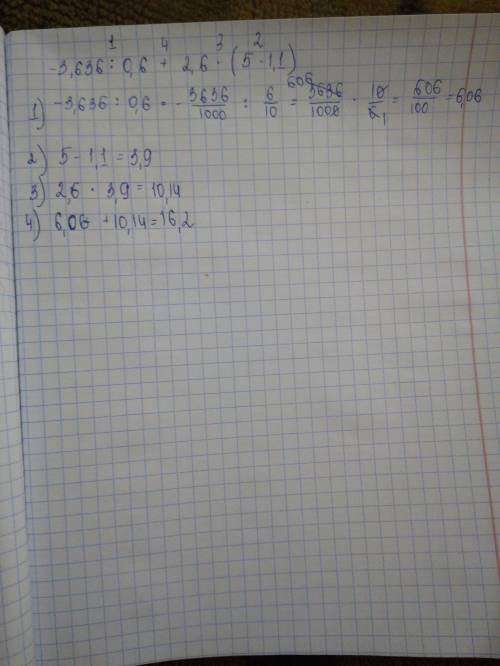 1 4 3 2
-3,636 : 0,6 + 2,6 · (5-1,1)
1) -3,636 : 0,6 = - 3636/1000 : 6/10 = 606 3636/1000 · 10/6 1 = 606/100 = 6,06
2) 5 - 1,1 = 3,9
3) 2,6 · 3,9 = 10,14
4) 6,06 + 10,14 = 16,2